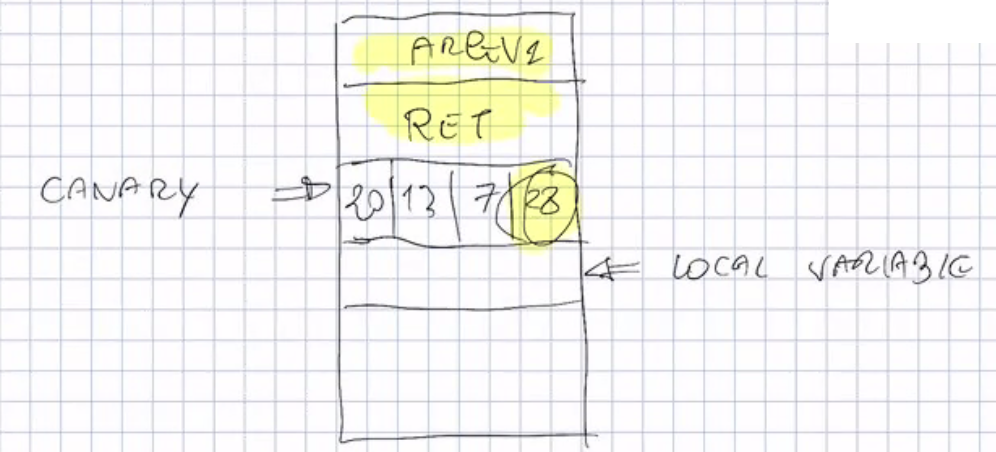 ARGV1
RET
CANARY ⇒ 20 | 13 | 7 | 28
⇐ LOCAL VARIABLE